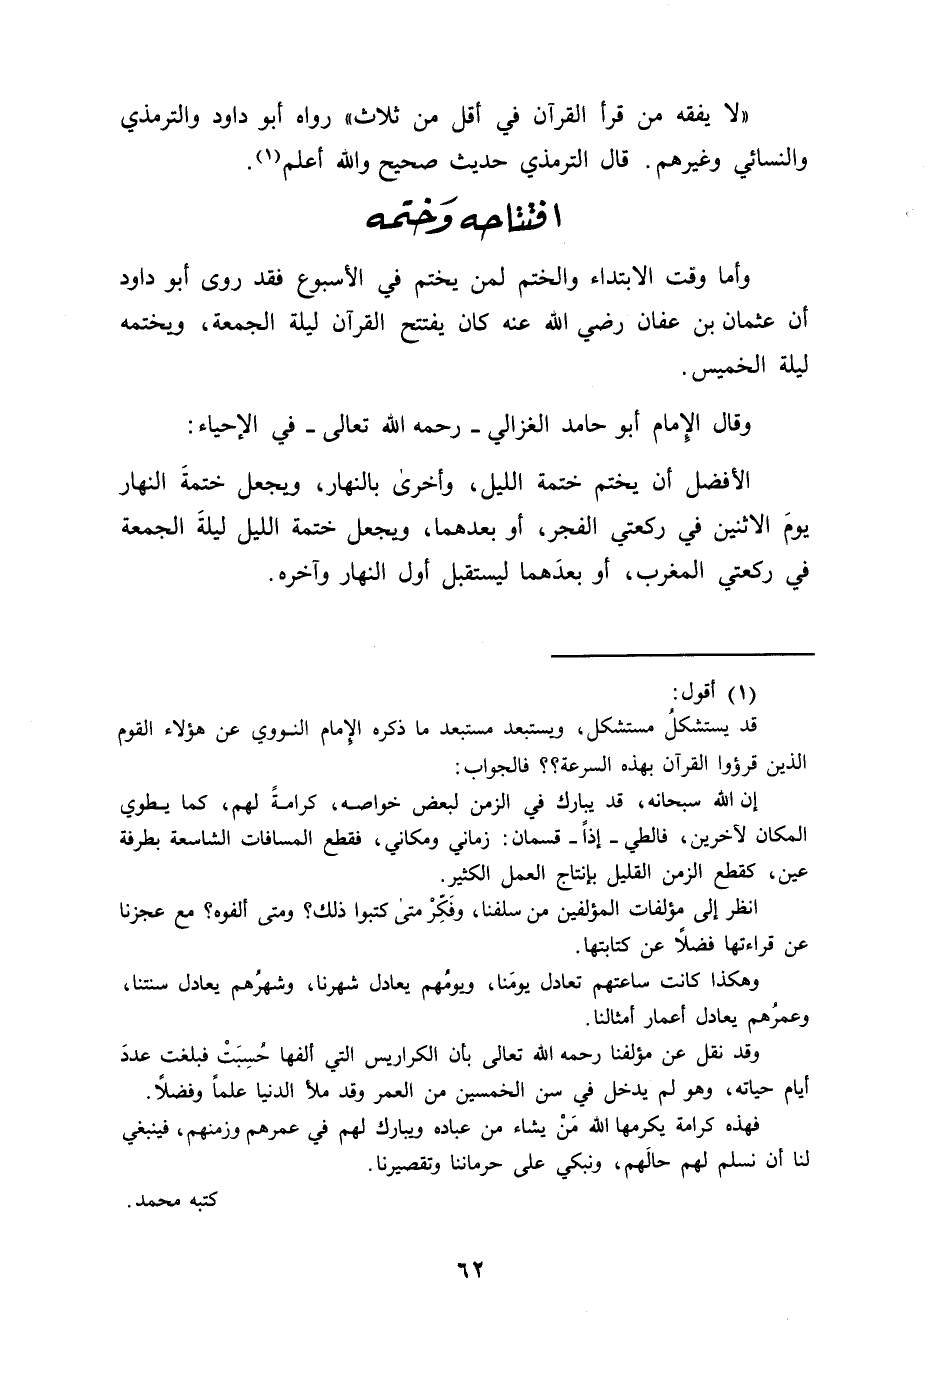 «لا يفقه من قرأ القرآن في أقل من ثلاث» رواه أبو داود والترمذي
والنسائي وغيرهم. قال الترمذي حديث صحيح والله أعلم(١).
افتتاحه وَختمه
وأما وقت الابتداء والختم لمن يختم في الأسبوع فقد روى أبو داود
أن عثمان بن عفان رضي الله عنه كان يفتتح القرآن ليلة الجمعة، ويختمه
ليلة الخميس.
وقال الإِمام أبو حامد الغزالي ـ رحمه الله تعالى ـ في الإحياء:
الأفضل أن يختم ختمة الليل، وأخرىٰ بالنهار، ويجعل ختمةَ النهار
يومَ الاثنين في ركعتي الفجر، أو بعدهما، ويجعل ختمة الليل ليلةَ الجمعة
في ركعتي المغرب، أو بعدَهما ليستقبل أول النهار وآخره.
(١) أقول:
قد يستشكلُ مستشكل، ويستبعد مستبعد ما ذكره الإِمام النووي عن هؤلاء القوم
الذين قرؤوا القرآن بهذه السرعة؟؟ فالجواب:
إن الله سبحانه، قد يبارك في الزمن لبعض خواصه، كرامةً لهم، كما يطوي
المكان لآخرين، فالطي ـ إذاً ـ قسمان: زماني ومكاني، فقطع المسافات الشاسعة بطرفة
عين، كقطع الزمن القليل بإنتاج العمل الكثير.
انظر إلى مؤلفات المؤلفين من سلفنا، وفَكِّرْ متىٰ كتبوا ذلك؟ ومتى ألفوه؟ مع عجزنا
عن قراءتها فضلاً عن كتابتها.
وهكذا كانت ساعتهم تعادل يومَنا، ويومُهم يعادل شهرنا، وشهرُهم يعادل سنتنا،
وعمرُهم يعادل أعمار أمثالنا.
وقد نقل عن مؤلفنا رحمه الله تعالى بأن الكراريس التي ألفها حُسِبَتْ فبلغت عددَ
أيام حياته، وهو لم يدخل في سن الخمسين من العمر وقد ملأ الدنيا علماً وفضلاً.
فهذه كرامة يكرمها الله مَنْ يشاء من عباده ويبارك لهم في عمرهم وزمنهم، فينبغي
لنا أن نسلم لهم حالَهم، ونبكي على حرماننا وتقصيرنا.
كتبه محمد.
٦٢